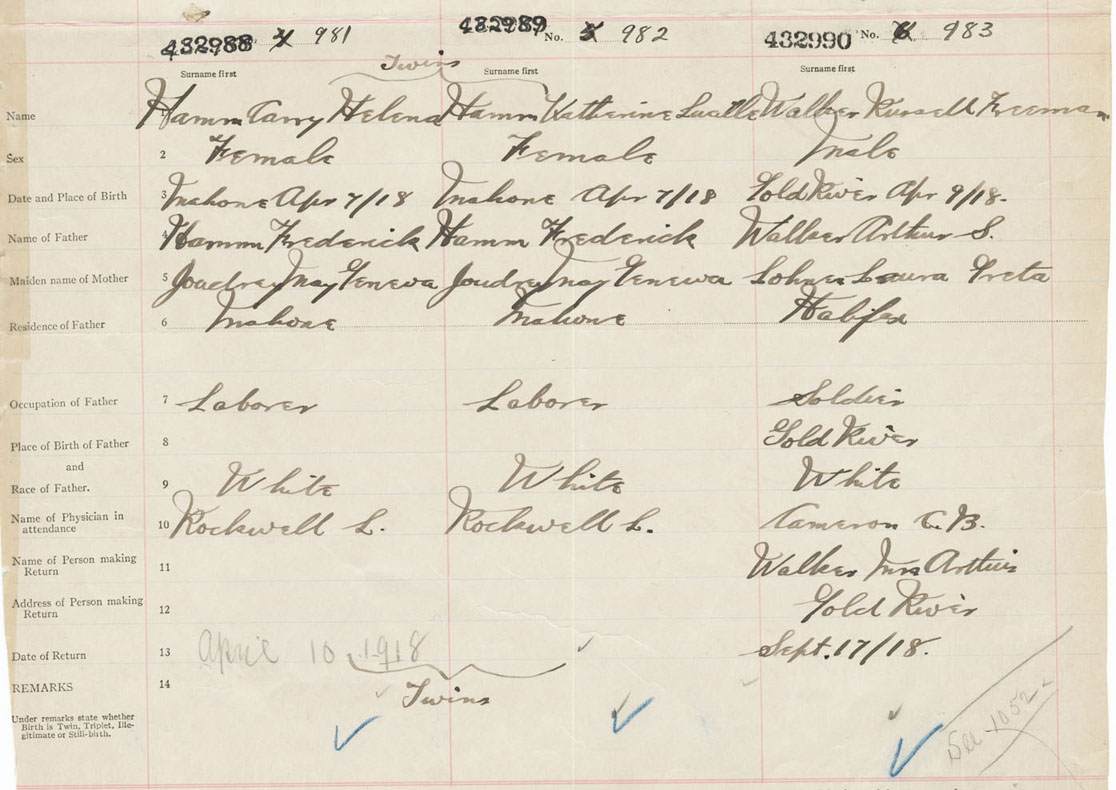 432988 981 432989 No. 982 432990 No. 983
Twins
Surname first Surname first Surname first
Name Hamm Carry Helena Hamm Katherine Luella Walker Russell Freeman
Sex 2 Female Female Male
Date and Place of Birth 3 Mahone Apr 7/18 Mahone Apr 7/18 Gold River Apr 9/18.
Name of Father 4 Hamm Frederick Hamm Frederick Walker Arthur S.
Maiden name of Mother 5 Joudrey May Geneva Joudrey May Geneva Lohnes Laura Greta
Residence of Father 6 Mahone Mahone Halifax
Occupation of Father 7 Laborer Laborer Soldier
Place of Birth of Father 8 Gold River
and
Race of Father. 9 White White White
Name of Physician in
attendance 10 Rockwell L. Rockwell L. Cameron C. B.
Name of Person making
Return 11 Walker Mrs Arthur
Address of Person making
Return 12 Gold River
Date of Return 13 April 10 1918 Sept. 17/18.
REMARKS 14 Twins
Under remarks state whether
Birth is Twin, Triplet, Ille-
gitimate or Still-birth.
See 1052